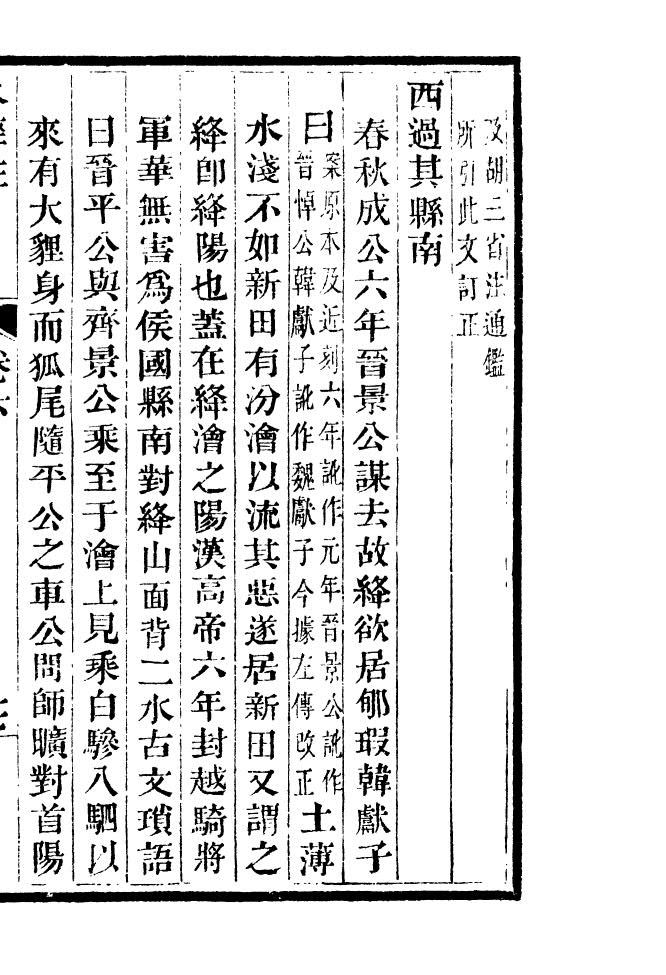 及胡三省注通鑑
所引此文訂正
西過其縣南
春秋成公六年晉景公謀去故絳欲居郇瑕韓獻子
曰案原本及近刻六年訛作元年晉景公訛作
晉悼公韓獻子訛作魏獻子今據左傳改正土薄
水淺不如新田有汾澮以流其惡遂居新田又謂之
絳卽絳陽也蓋在絳澮之陽漢高帝六年封越騎將
軍華無害爲侯國縣南對絳山面背二水古文瑣語
曰晉平公與齊景公乘至于澮上見乘白驂八駟以
來有大貍身而狐尾隨平公之車公問師曠對首陽